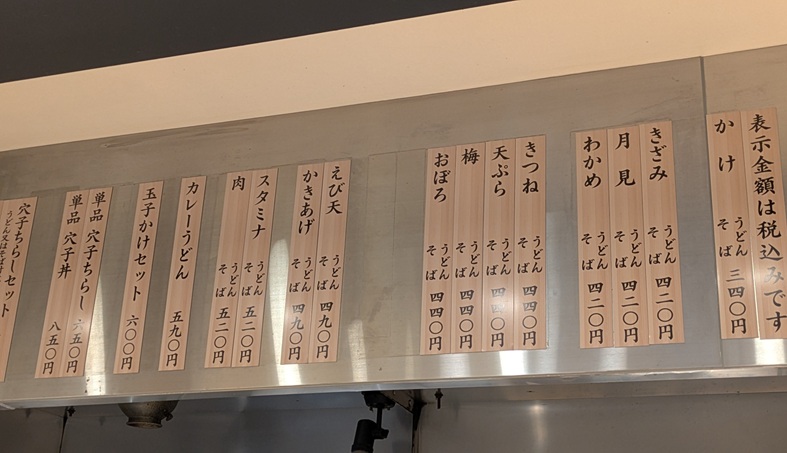 表示金額は税込みです
かけ うどん そば 三四〇円
きざみ うどん そば 四二〇円
月見 うどん そば 四二〇円
わかめ うどん そば 四二〇円
きつね うどん そば 四四〇円
天ぷら うどん そば 四四〇円
梅 うどん そば 四四〇円
おぼろ うどん そば 四四〇円
えび天 うどん そば 四九〇円
かきあげ うどん そば 四九〇円
スタミナ うどん そば 五二〇円
肉 うどん そば 五二〇円
カレーうどん 五九〇円
玉子かけセット 六〇〇円
単品 穴子ちらし 六五〇円
単品 穴子丼 八五〇円
穴子ちらしセット
うどん又はそば付